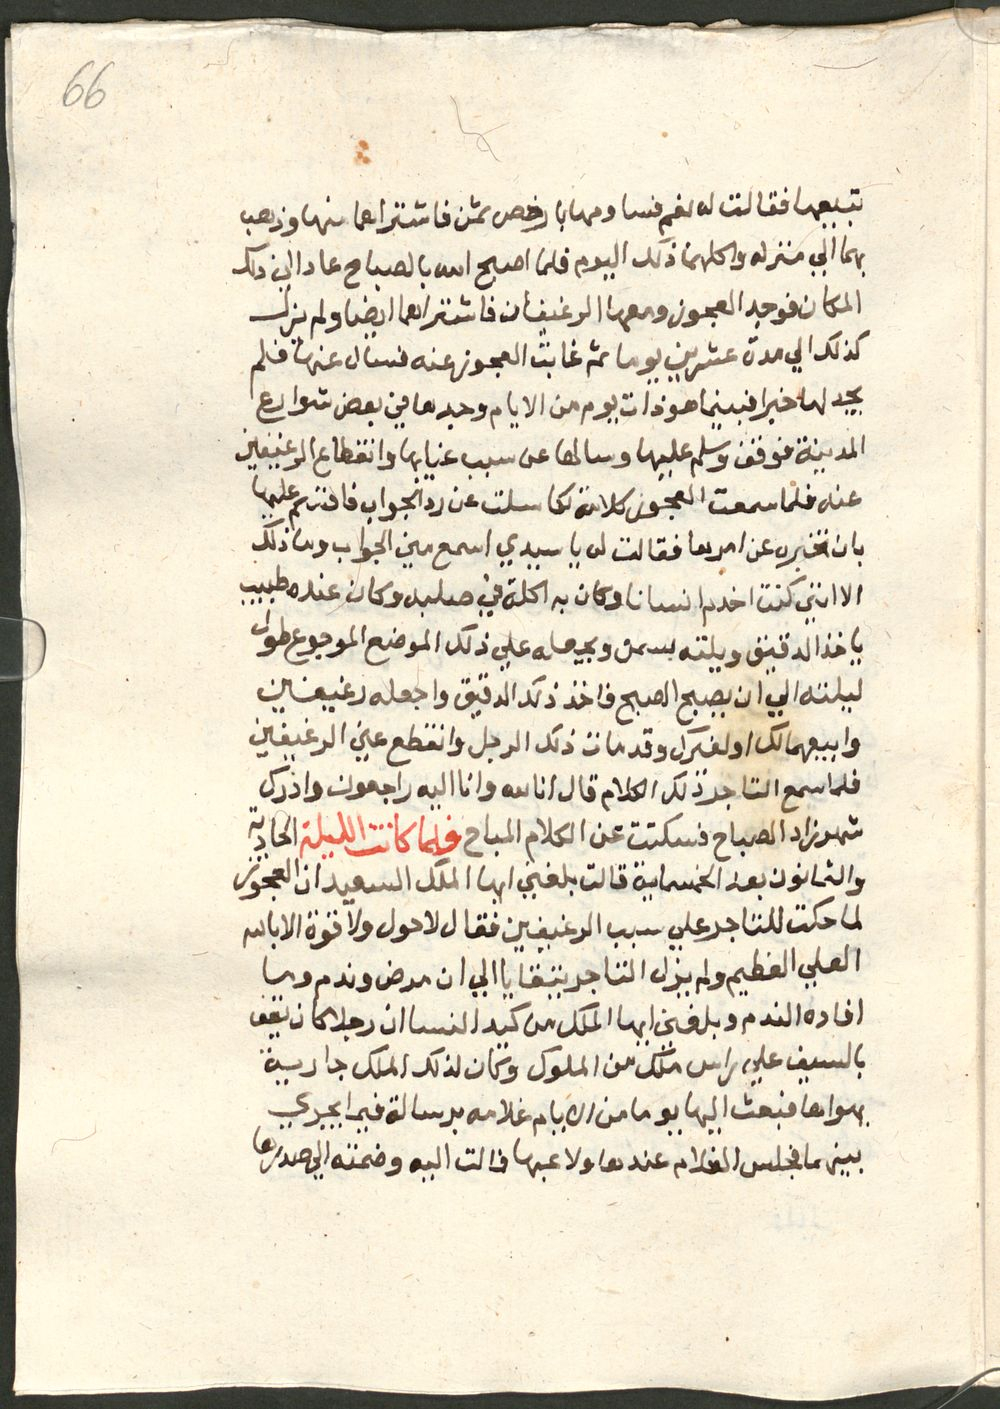 66
تبيعها فقالت له نعم فساومها بارخص ثمن فاشتراهما منها وذهب
بهما الي منزله واكلهما ذلك اليوم فلما اصبح الله بالصباح عاد الي ذلك
المكان فوجد العجوز ومعها الرغيفان فاشتراهما ايضا ولم يزل
كذلك الي مدة عشرين يوما ثم غابت العجوز عنه فسال عنها فلم
يجد لها خبرا فبينما هو ذات يوم من الايام وجدها في بعض شوارع
المدينة فوقف وسلم عليها وسالها عن سبب غيابها وانقطاع الرغيفين
عنه فلما سمعت العجوز كلامه تكاسلت عن رد الجواب فاقسم عليها
بان تخبره عن امرها فقالت له يا سيدي اسمع مني الجواب وما ذلك
الا انني كنت اخدم انسانا وكان به اكلة في صلبه وكان عنده طبيب
ياخذ الدقيق ويلته بسمن ويجعله علي ذلك الموضع الموجوع طول
ليلته الي ان يصبح الصبح فاخذ ذلك الدقيق واجعله رغيفين
وابيعهما لك او لغيرك وقد مات ذلك الرجل وانقطع عني الرغيفين
فلما سمع التاجر ذلك الكلام قال انا لله وانا اليه راجعون وادرك
شهرزاد الصباح فسكتت عن الكلام المباح فلما كانت الليلة الحادية
والثمانون بعد الخمسماية قالت بلغني ايها الملك السعيد ان العجوز
لما حكت للتاجر علي سبب الرغيفين فقال لا حول ولا قوة الا بالله
العلي العظيم ولم يزل التاجر يتقايا الي ان مرض وندم وما
افاده الندم وبلغني ايها الملك من كيد النسا ان رجلا كان يقف
بالسيف علي راس ملك من الملوك وكان لذلك الملك جارية
يهواها فبعث اليها يوما من الايام غلامه برسالة فيما يجري
بينهما فجلس الغلام عندها ولاعبها فمالت اليه وضمته الي صدرها